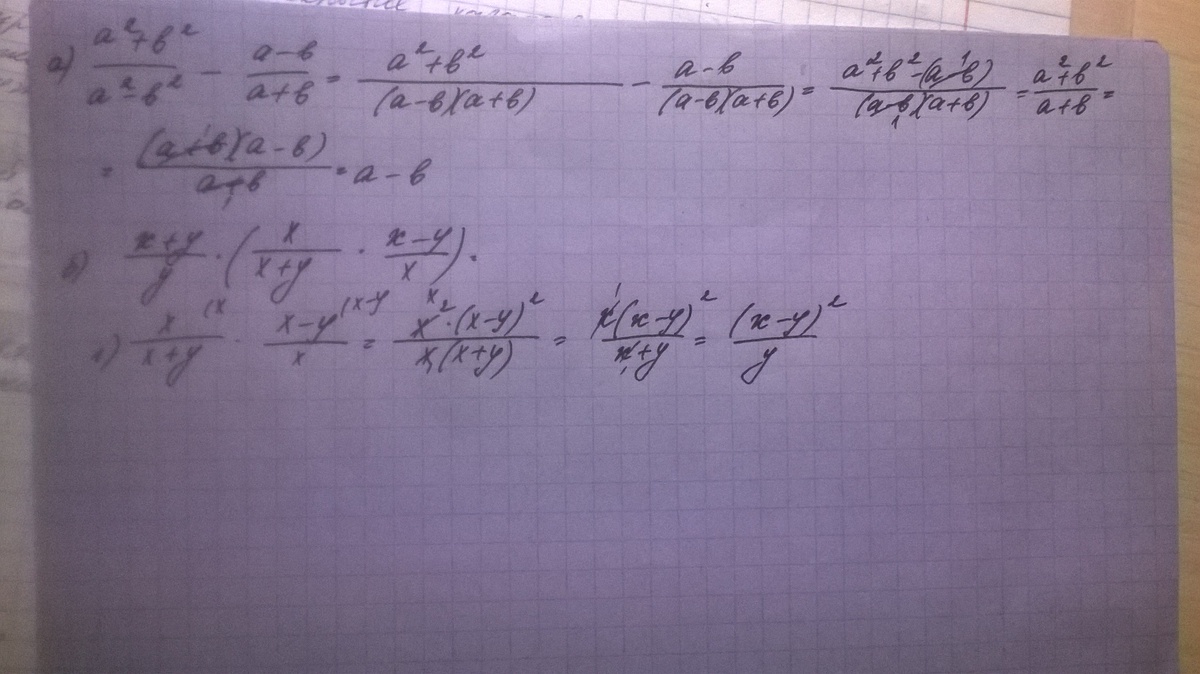 а) (a²+b²)/(a²-b²) - (a-b)/(a+b) = (a²+b²)/((a-b)(a+b)) - (a-b)/((a-b)(a+b)) = (a²+b²-(a-b))/((a-b)(a+b)) = (a²+b²)/(a+b) =
= ((a+b)(a-b))/(a+b) = a-b
б) (x+y)/y · (x/(x+y) · (x-y)/x).
1) x/(x+y) (x · (x-y)/x (x-y = (x²·(x-y)²)/(x(x+y)) = (x(x-y)²)/(x+y) = (x-y)²/y